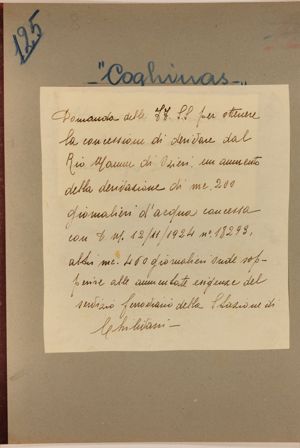 125
-"Coghinas"-
Domanda delle FF. SS. per ottenere
la concessione di derivare dal
Rio Mannu di Ozieri, in aumento
della derivazione di mc. 200
giornalieri d'acqua concessa
con D. 12/11/1924 n° 18293,
altri mc. 400 giornalieri onde sop-
perire alle aumentate esigenze del
servizio ferroviario della Stazione di
Chilivani -